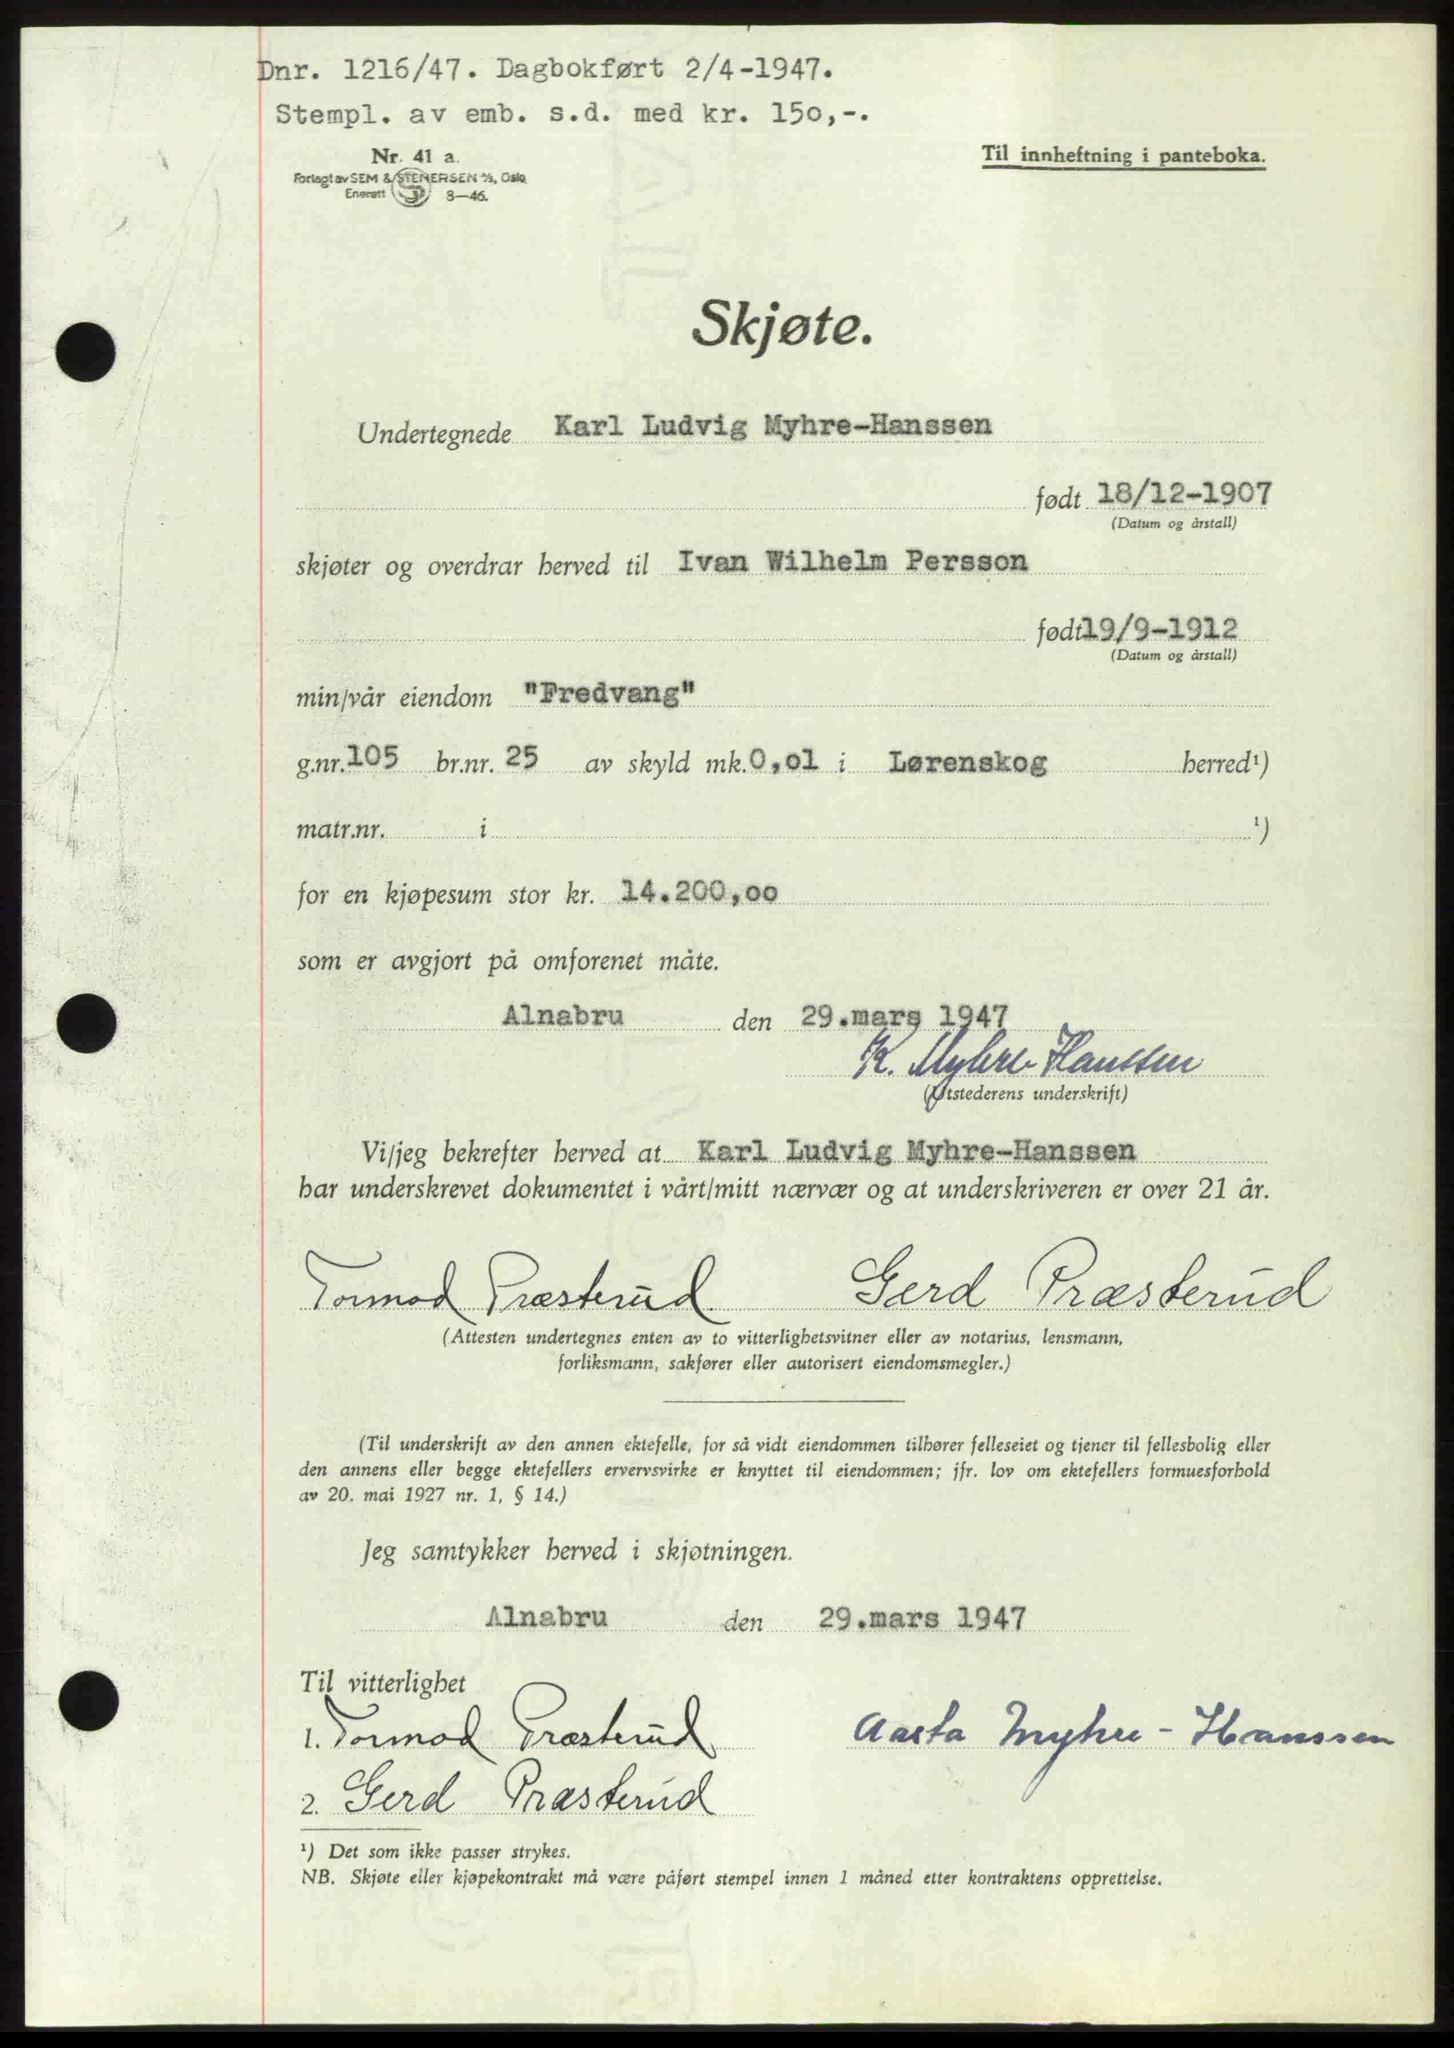 Dnr. 1216/47. Dagbokført 2/4-1947.
Stempl. av emb. s.d. med kr. 150,-.
Nr. 41 a.
Til innheftning i panteboka.
Forlagt av SEM & STENERSEN A/S, Oslo
Enerett 8—46.
Skjøte.
Undertegnede Karl Ludvig Myhre-Hanssen
født 18/12-1907
(Datum og årstall)
skjøter og overdrar herved til Ivan Wilhelm Persson
født 19/9-1912
(Datum og årstall)
min/vår eiendom "Fredvang"
g.nr. 105 br.nr. 25 av skyld mk. 0,01 i Lørenskog herred¹)
matr.nr. i ¹)
for en kjøpesum stor kr. 14.200,00
som er avgjort på omforenet måte.
Alnabru den 29.mars 1947
K. Myhre Hanssen
(Utstederens underskrift)
Vi/jeg bekrefter herved at Karl Ludvig Myhre-Hanssen
har underskrevet dokumentet i vårt/mitt nærvær og at underskriveren er over 21 år.
Tormod Præsterud Gerd Præsterud
(Attesten undertegnes enten av to vitterlighetsvitner eller av notarius, lensmann,
forliksmann, sakfører eller autorisert eiendomsmegler.)
(Til underskrift av den annen ektefelle, for så vidt eiendommen tilhører felleseiet og tjener til fellesbolig eller
den annens eller begge ektefellers ervervsvirke er knyttet til eiendommen; jfr. lov om ektefellers formuesforhold
av 20. mai 1927 nr. 1, § 14.)
Jeg samtykker herved i skjøtningen.
Alnabru den 29.mars 1947
Til vitterlighet
1. Tormod Præsterud Aasta Myhre-Hanssen
2. Gerd Præsterud
¹) Det som ikke passer strykes.
NB. Skjøte eller kjøpekontrakt må være påført stempel innen 1 måned etter kontraktens opprettelse.